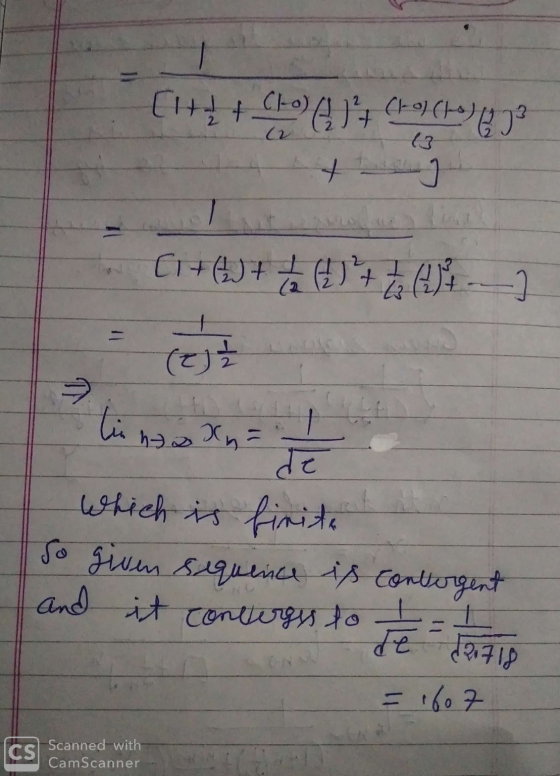 = 1 / [1 + 1/2 + (1-0)/⌊2 (1/2)² + (1-0)(1-0)/⌊3 (1/2)³
+ —]
= 1 / [1 + (1/2) + 1/⌊2 (1/2)² + 1/⌊3 (1/2)³ + —]
= 1 / (e)^1/2
⇒
lim n→∞ xn = 1/√e
which is finite
So given sequence is convergent
and it converges to 1/√e = 1/√2.718
= .607
CS Scanned with
CamScanner